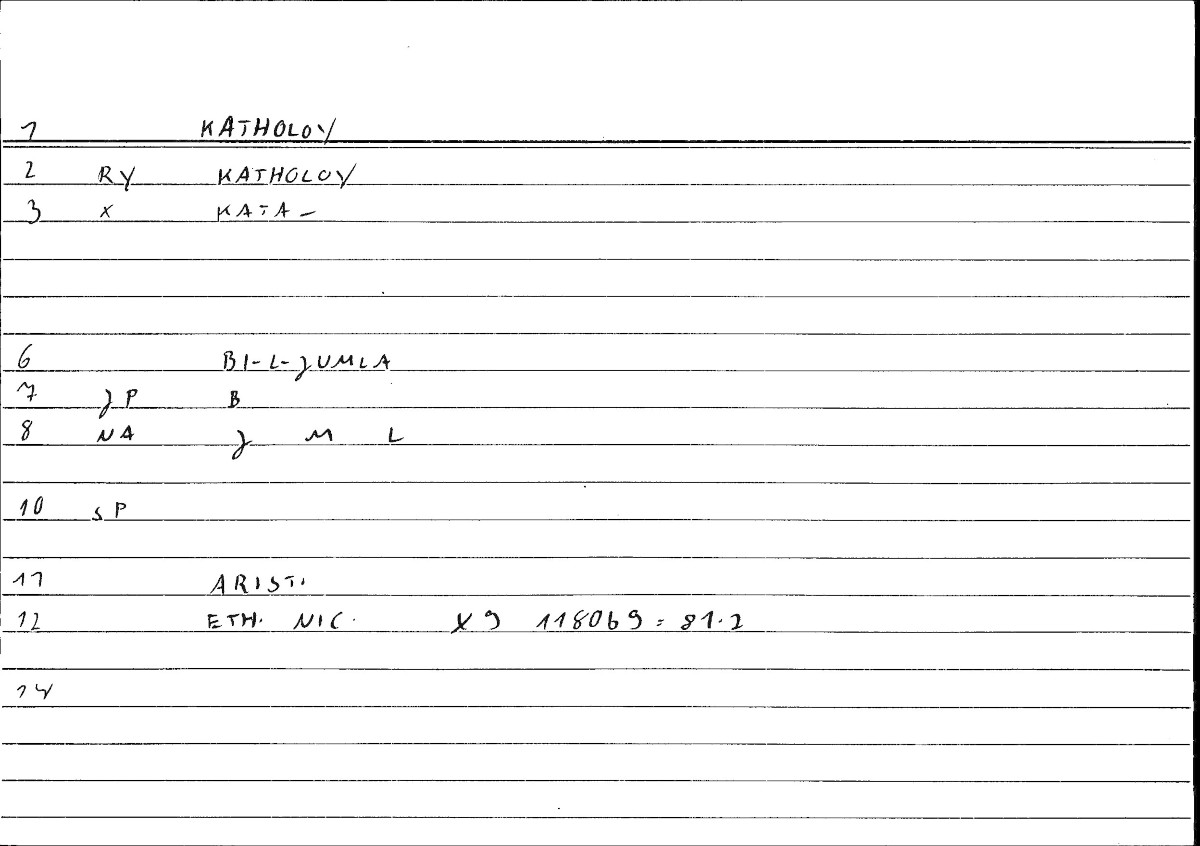 1 KATHOLOY
2 RY KATHOLOY
3 X KATA-
6 BI-L-JUMLA
7 JP B
8 NA J M L
10 SP
11 ARIST.
12 ETH. NIC. X9 1180b9 = 81.2
14